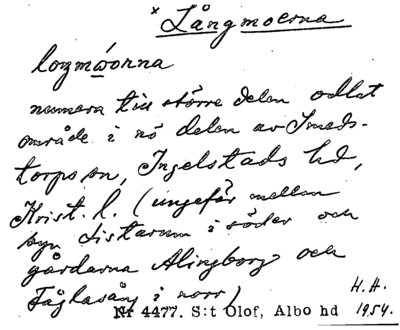 × Långmoerna
lorzmẃorna
numera till större delen odlat
område i nö delen av Smeds-
torps sn, Ingelstads hd,
Krist. l. (ungefär mellan
byn Listarum i söder och
gårdarna Alingborg och
Fåglasång i norr)
H. H.
Nr 4477. S:t Olof, Albo hd 1954.